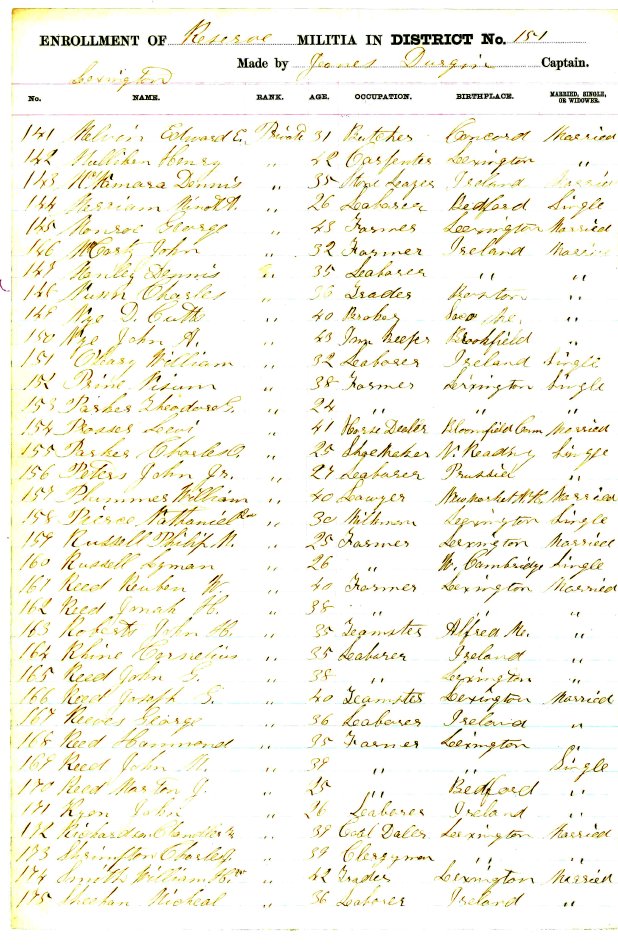 ENROLLMENT OF Reserve MILITIA IN DISTRICT No. 151
Made by James Durgin Captain.
Lexington
No. NAME. RANK. AGE. OCCUPATION. BIRTHPLACE. MARRIED, SINGLE, OR WIDOWER.
141 Melvin Edward E. Private 31 Butcher Concord Married
142 Mulliken Henry " 42 Carpenter Lexington "
143 McNamara Dennis " 35 Ireland Married
144 Merriam " 26 Leaborer Bedford Single
145 Monroe George " 43 Farmer Lexington Married
146 McCarty John " 32 Farmer Ireland Married
147 Manley Dennis " 35 Leaborer " "
148 Nunn Charles " 33 Trader Boston "
149 Nye D. Cutt " 40 Broker "
150 Nye John A. " 43 Inn Keeper Brookfield "
151 William " 32 Leaborer Ireland Single
152 " 38 Farmer Lexington Single
153 Parker Theodore E. " 24 " " "
154 Prosser Levi " 41 Horse Dealer Bloomfield Conn Married
155 Parker Charles A. " 25 Shoe Maker N. Reading Single
156 Peters John Jr. " 27 Leaborer Prussia "
157 Plummer William " 40 Lawyer Newmarket N.H. Married
158 Pierce Nathaniel " 30 Milkman Lexington Single
159 Russell Philip N. " 25 Farmer Lexington Married
160 Russell Lyman " 26 " W. Cambridge Single
161 Reed Reuben W. " 40 Farmer Lexington Married
162 Reed H. " 38 " " "
163 Roberts John H. " 35 Teamster Alfred Me. "
164 Rhine Cornelius " 35 Leaborer Ireland "
165 Reed John G. " 38 " Lexington "
166 Reed Joseph S. " 40 Teamster Lexington Married
167 Reeves George " 36 Leaborer Ireland "
168 Reed Hammond " 35 Farmer Lexington "
169 Reed John M. " 39 " " Single
170 Reed Marton J. " 25 " Bedford "
171 Ryon John " 26 Leaborer Ireland "
172 Richardson Chandler " 39 Coal Daler Lexington Married
173 Shrimpton Charles " 39 Clergyman " "
174 Smith William H. " 42 Trader Lexington Married
175 Sheehan Micheal " 36 Leaborer Ireland "